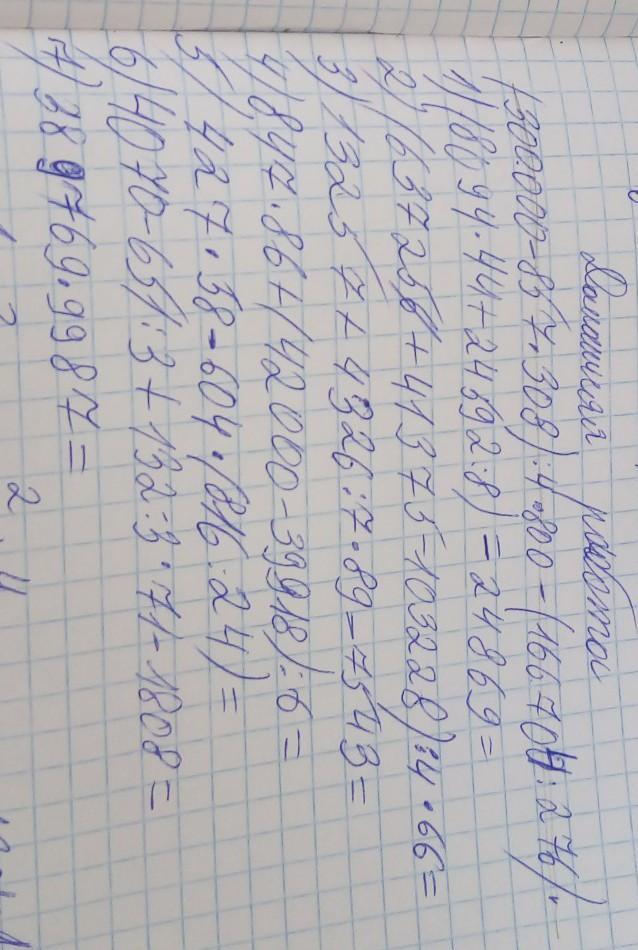 Домашняя работа
(300000-857·308):4·800-(166704:276)·
1)(8094·44+24592:8)=24869=
2)(637256+41375-103228):4·66=
3)13257+4326:7·89-7543=
4)847·86+(42000-39918):6=
5)427·38-604·(816:24)=
6)4070-651:3+132:3·71-1808=
7)389769·9987=